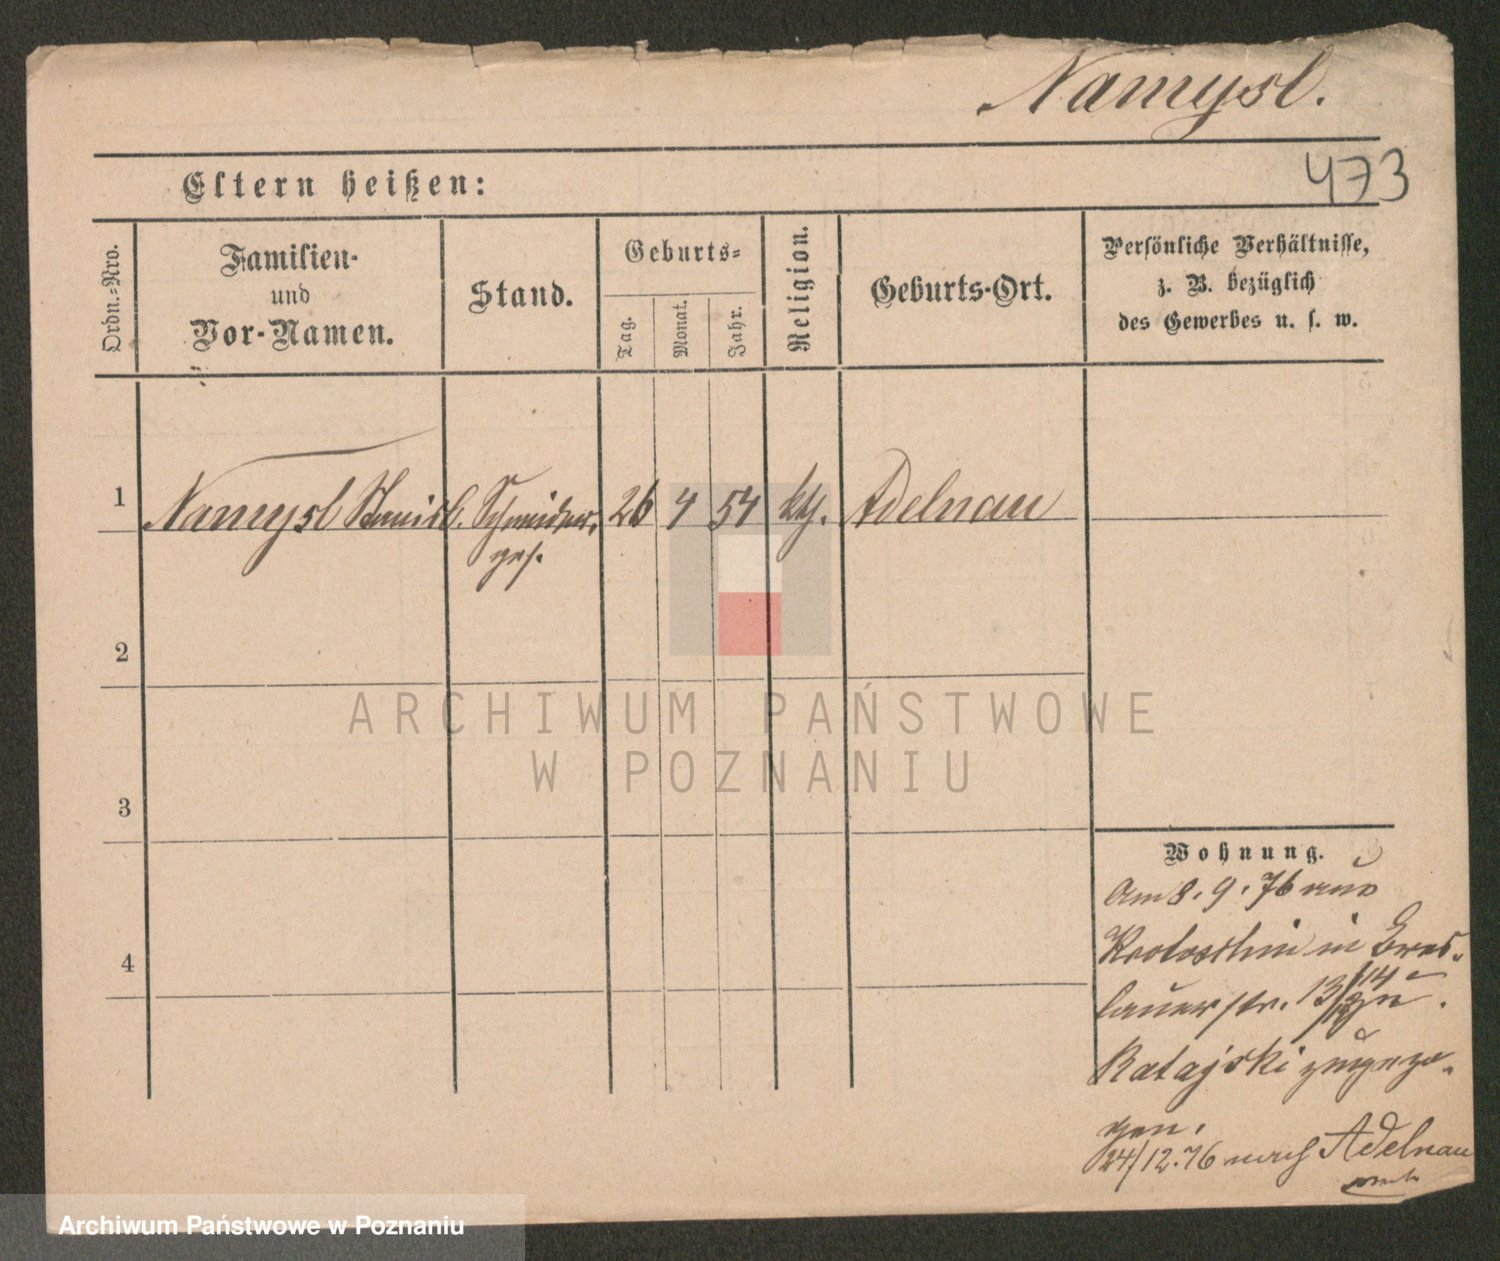 Namysl.
473
Eltern heißen:
Ordn.-Nro.
Familien-
und
Vor-Namen.
Stand.
Geburts-
Tag.
Monat.
Jahr.
Religion.
Geburts-Ort.
Persönliche Verhältnisse,
z. B. bezüglich
des Gewerbes u. s. w.
1
Namysl Stanisl. Schneider- 26 4 54 kth. Adelnau
ges.
2
3
4
Wohnung.
Am 8. 9. 76 aus
Krotoschin in Bres-
lauerstr. 13/14
Ratajski zugezo-
gen.
24/12.76 nach Adelnau
ARCHIWUM PAŃSTWOWE
W POZNANIU
Archiwum Państwowe w Poznaniu